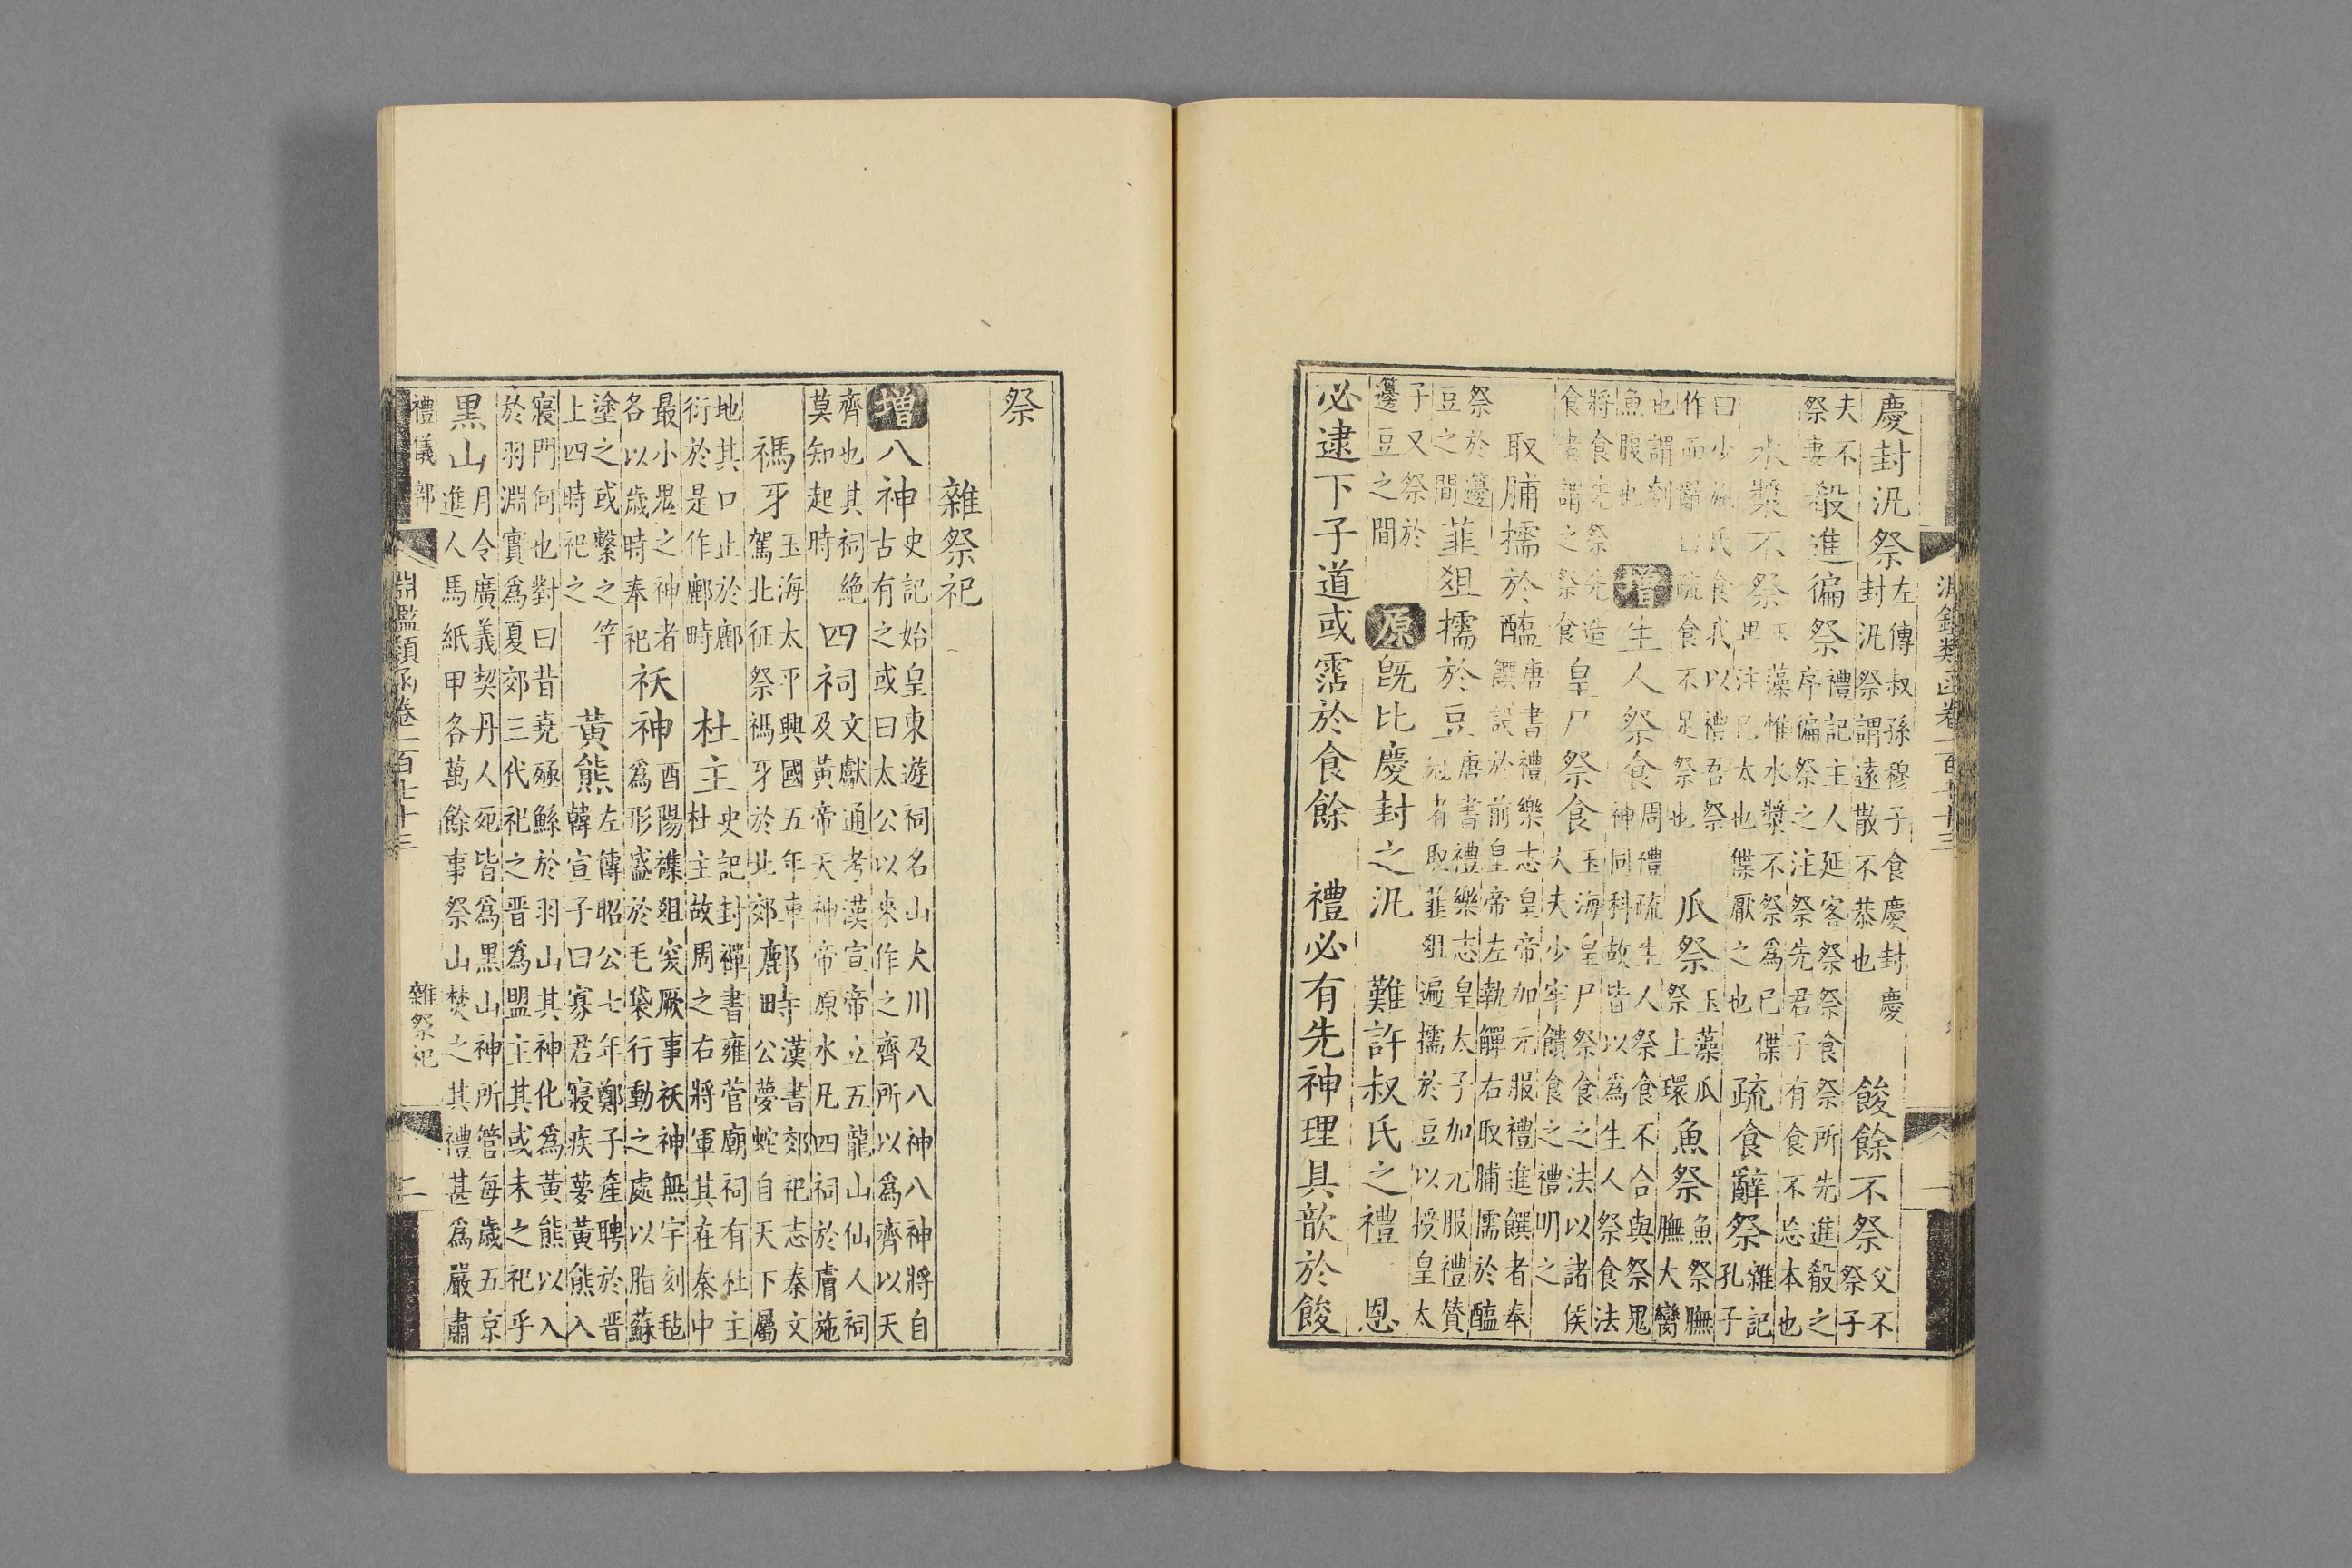 慶封汜祭左傳叔孫穆子食慶封慶封汜祭謂遠散不恭也餕餘不祭父不祭子
夫不祭妻殽進徧祭禮記主人延客祭祭食祭所先進殽之序徧祭之注祭祭先君子有食不忘本也
水漿不祭玉藻惟水漿不祭為已偞卑注已太也偞厭之也疏食辭祭雜記孔子
曰少施氏食我以禮吾祭作而辭曰疏食不足祭也瓜祭玉藻瓜祭上環魚祭魚祭膴膴大臠
也謂刳魚腹也增生人祭食周禮疏生人祭食不合與祭鬼神同科故皆以為生人祭食法
將食先祭先造食者謂之祭食皇尸祭食玉海皇尸祭食之法以諸侯大夫少牢饋食之禮明之
取脯擩於醢唐書禮樂志皇帝加元服禮進饌者奉饌設於前皇帝左執觶右取脯擩於醢
祭於籩豆之間韮爼擩於豆唐書禮樂志皇太子加元服禮贊冠者取韮爼遍擩於豆以授皇太
子又祭於籩豆之間原既比慶封之汜 難許叔氏之禮 恩
必逮下子道或霑於食餘 禮必有先神理具歆於餕
祭
雜祭祀
增八神史記始皇東遊祠名山大川及八神八神將自古有之或曰太公以來作之齊所以為齊以天
齊也其祠絕莫知起時四祠文獻通考漢宣帝立五龍山仙人祠及黃帝天神帝原水凡四祠於膚施
禡牙玉海太平興國五年車駕北征祭禡牙於北郊鄜畤漢書郊祀志秦文公夢蛇自天下屬
地其口止於鄜衍於是作鄜畤杜主史記封禪書雍菅廟祠有杜主杜主故周之右將軍其在秦中
最小鬼之神者各以歲時奉祀祅神酉陽襍俎突厥事祅神無宇刻毡為形盛於毛袋行動之處以脂蘇
塗之或繫之竿上四時祀之黃熊左傳昭公七年鄭子產聘於晉韓宣子曰寡君寢疾夢黃熊入
寢門何也對曰昔堯殛鯀於羽山其神化為黃熊以入於羽淵實為夏郊三代祀之晉為盟主其或未之祀乎
黑山月令廣義契丹人死皆為黑山神所管每歲五京進人馬紙甲各萬餘事祭山焚之其禮甚為嚴肅
禮儀部 淵鑑類函卷一百七十三 雜祭祀 二